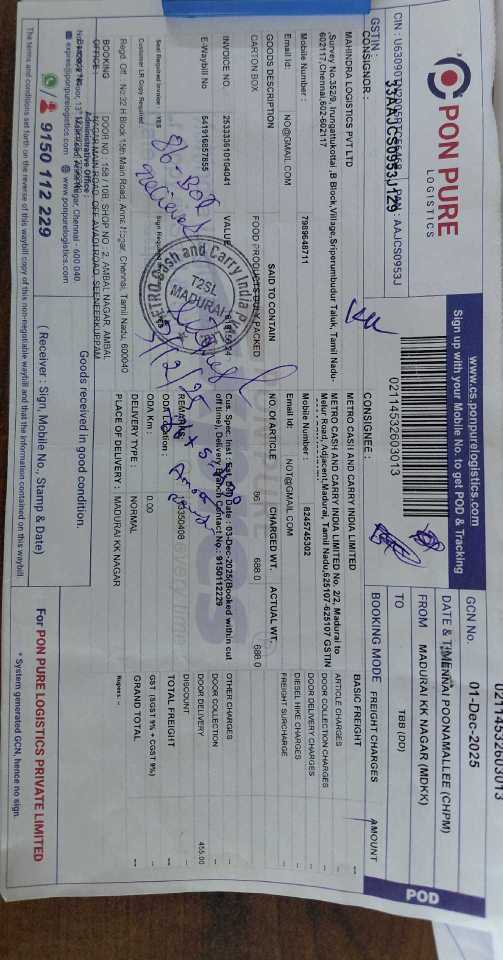 02114532603013
CIN : U63090TN2005PTC
PAN : AAJCS0953J
GSTIN 33AAJCS0953J1Z9
PON PURE
LOGISTICS
www.cs.ponpurelogistics.com
Sign up with your Mobile No. to get POD & Tracking
02114532603013
GCN No. 01-Dec-2025
DATE & TIME
FROM CHENNAI POONAMALLEE (CHPM)
TO MADURAI KK NAGAR (MDKK)
BOOKING MODE TBB (DD)
POD
CONSIGNOR :
MAHINDRA LOGISTICS PVT LTD
,Survey No.352/9, Irungattukottai , B Block,Village,Sriperumbudur Taluk, Tamil Nadu-
602117,Chennai,602-602117
Mobile Number : 7989648711
Email Id: NO@GMAIL.COM
CONSIGNEE :
METRO CASH AND CARRY INDIA LIMITED
METRO CASH AND CARRY INDIA LIMITED No. 2/2, Madurai to
Melur Road, Adjacent,Madurai, Tamil Nadu,625107-625107 GSTIN
Mobile Number : 8245745302
Email Id: NOT@GMAIL.COM
GOODS DESCRIPTION SAID TO CONTAIN NO. OF ARTICLE CHARGED WT. ACTUAL WT.
CARTON BOX FOOD PRODUCTS DULY PACKED 86 688.0 688.0
INVOICE NO. 253333610104041 VALUE
E-Waybill No 541916857855
Seal Required Invoice : YES Sign Required
Customer LR Copy Required : YES
Cus. Spec. Inst : Est. Del Date : 03-Dec-2025(Booked within cut
off time), Delivery Branch Contact No.: 9150112229
REMARKS
ODA Location :
ODA Km : 0.00
DELIVERY TYPE : NORMAL
PLACE OF DELIVERY : MADURAI KK NAGAR
FREIGHT CHARGES AMOUNT
BASIC FREIGHT --
ARTICLE CHARGES --
DOOR COLLECTION CHARGES --
DOOR DELIVERY CHARGES --
DIESEL HIKE CHARGES --
FREIGHT SURCHARGE --
OTHER CHARGES --
DOOR COLLECTION --
DOOR DELIVERY 455.00
DISCOUNT --
TOTAL FREIGHT --
GST (SGST 9% + CGST 9%) --
GRAND TOTAL --
Rupees: --
86-Box
Received
Cash and Carry India
T2SL
MADURAI
Regd. Off : No.32 H Block 15th Main Road, Anna Nagar, Chennai, Tamil Nadu, 600040
BOOKING OFFICE : DOOR NO : 158 / 10B, SHOP NO : 2, AMBAL NAGAR, AMBAL
NAGAR MAIN ROAD, OFF AVADI ROAD, SENNEERKUPPAM
Administrative Office :
Chennai - 600 040
express@ponpurelogistics.com www.ponpurelogistics.com
9150 112 229
Goods received in good condition.
( Receiver : Sign, Mobile No., Stamp & Date)
For PON PURE LOGISTICS PRIVATE LIMITED
* System generated GCN, hence no sign.
The terms and conditions set forth on the reverse of this waybill copy of this non-negotiable waybill and that the information contained on this waybill